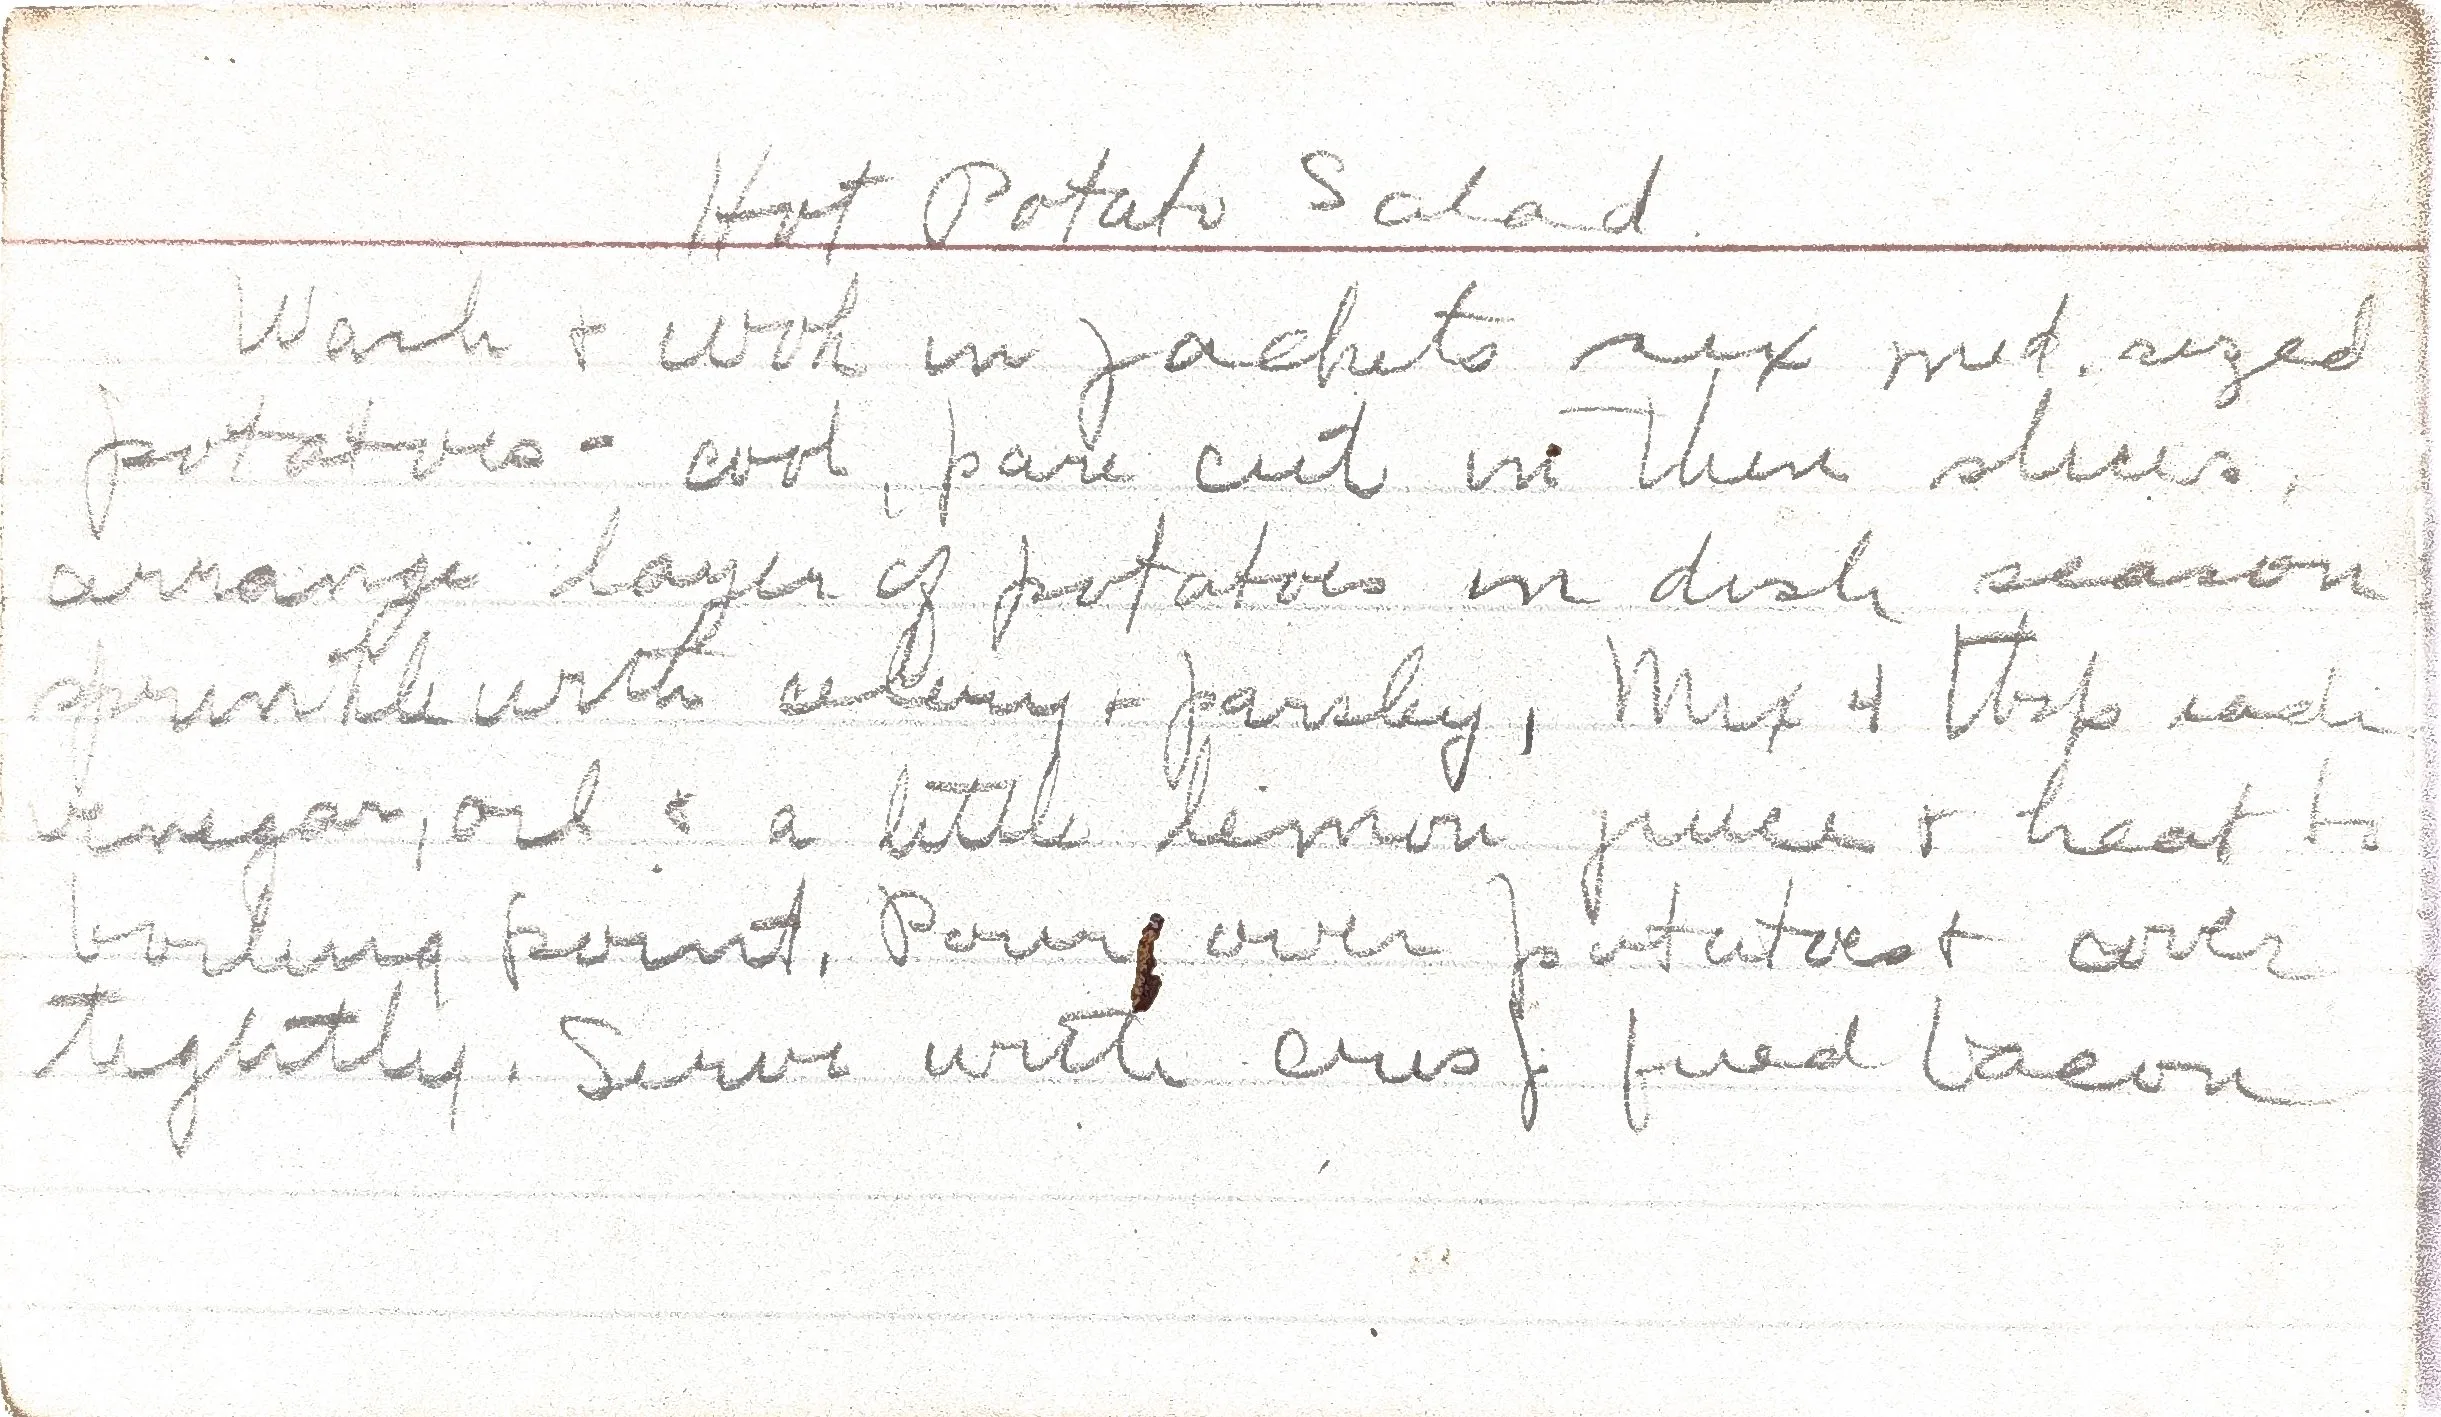 Hot Potato Salad.
Wash + cook in jackets six med. sized
potatoes - cool, pare cut in thin slices,
arrange layer of potatoes in dish season
sprinkle with celery + parsley, Mix 4 tbsp each
vinegar, oil & a little lemon juice + heat to
boiling point, Pour over potatoes + cover
tightly. Serve with crisp fried bacon